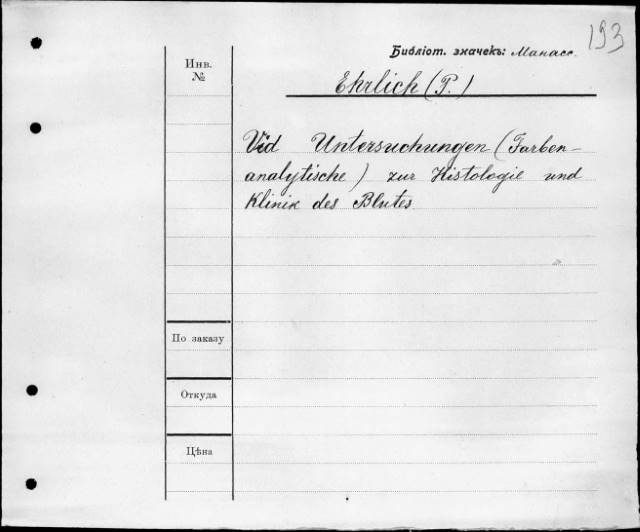 193
Библіот. значекъ: Манасс.
Инв.
№
Ehrlich (P.)
Vid Untersuchungen (Farben-
analytische) zur Histologie und
Klinik des Blutes.
По заказу
Откуда
Цѣна